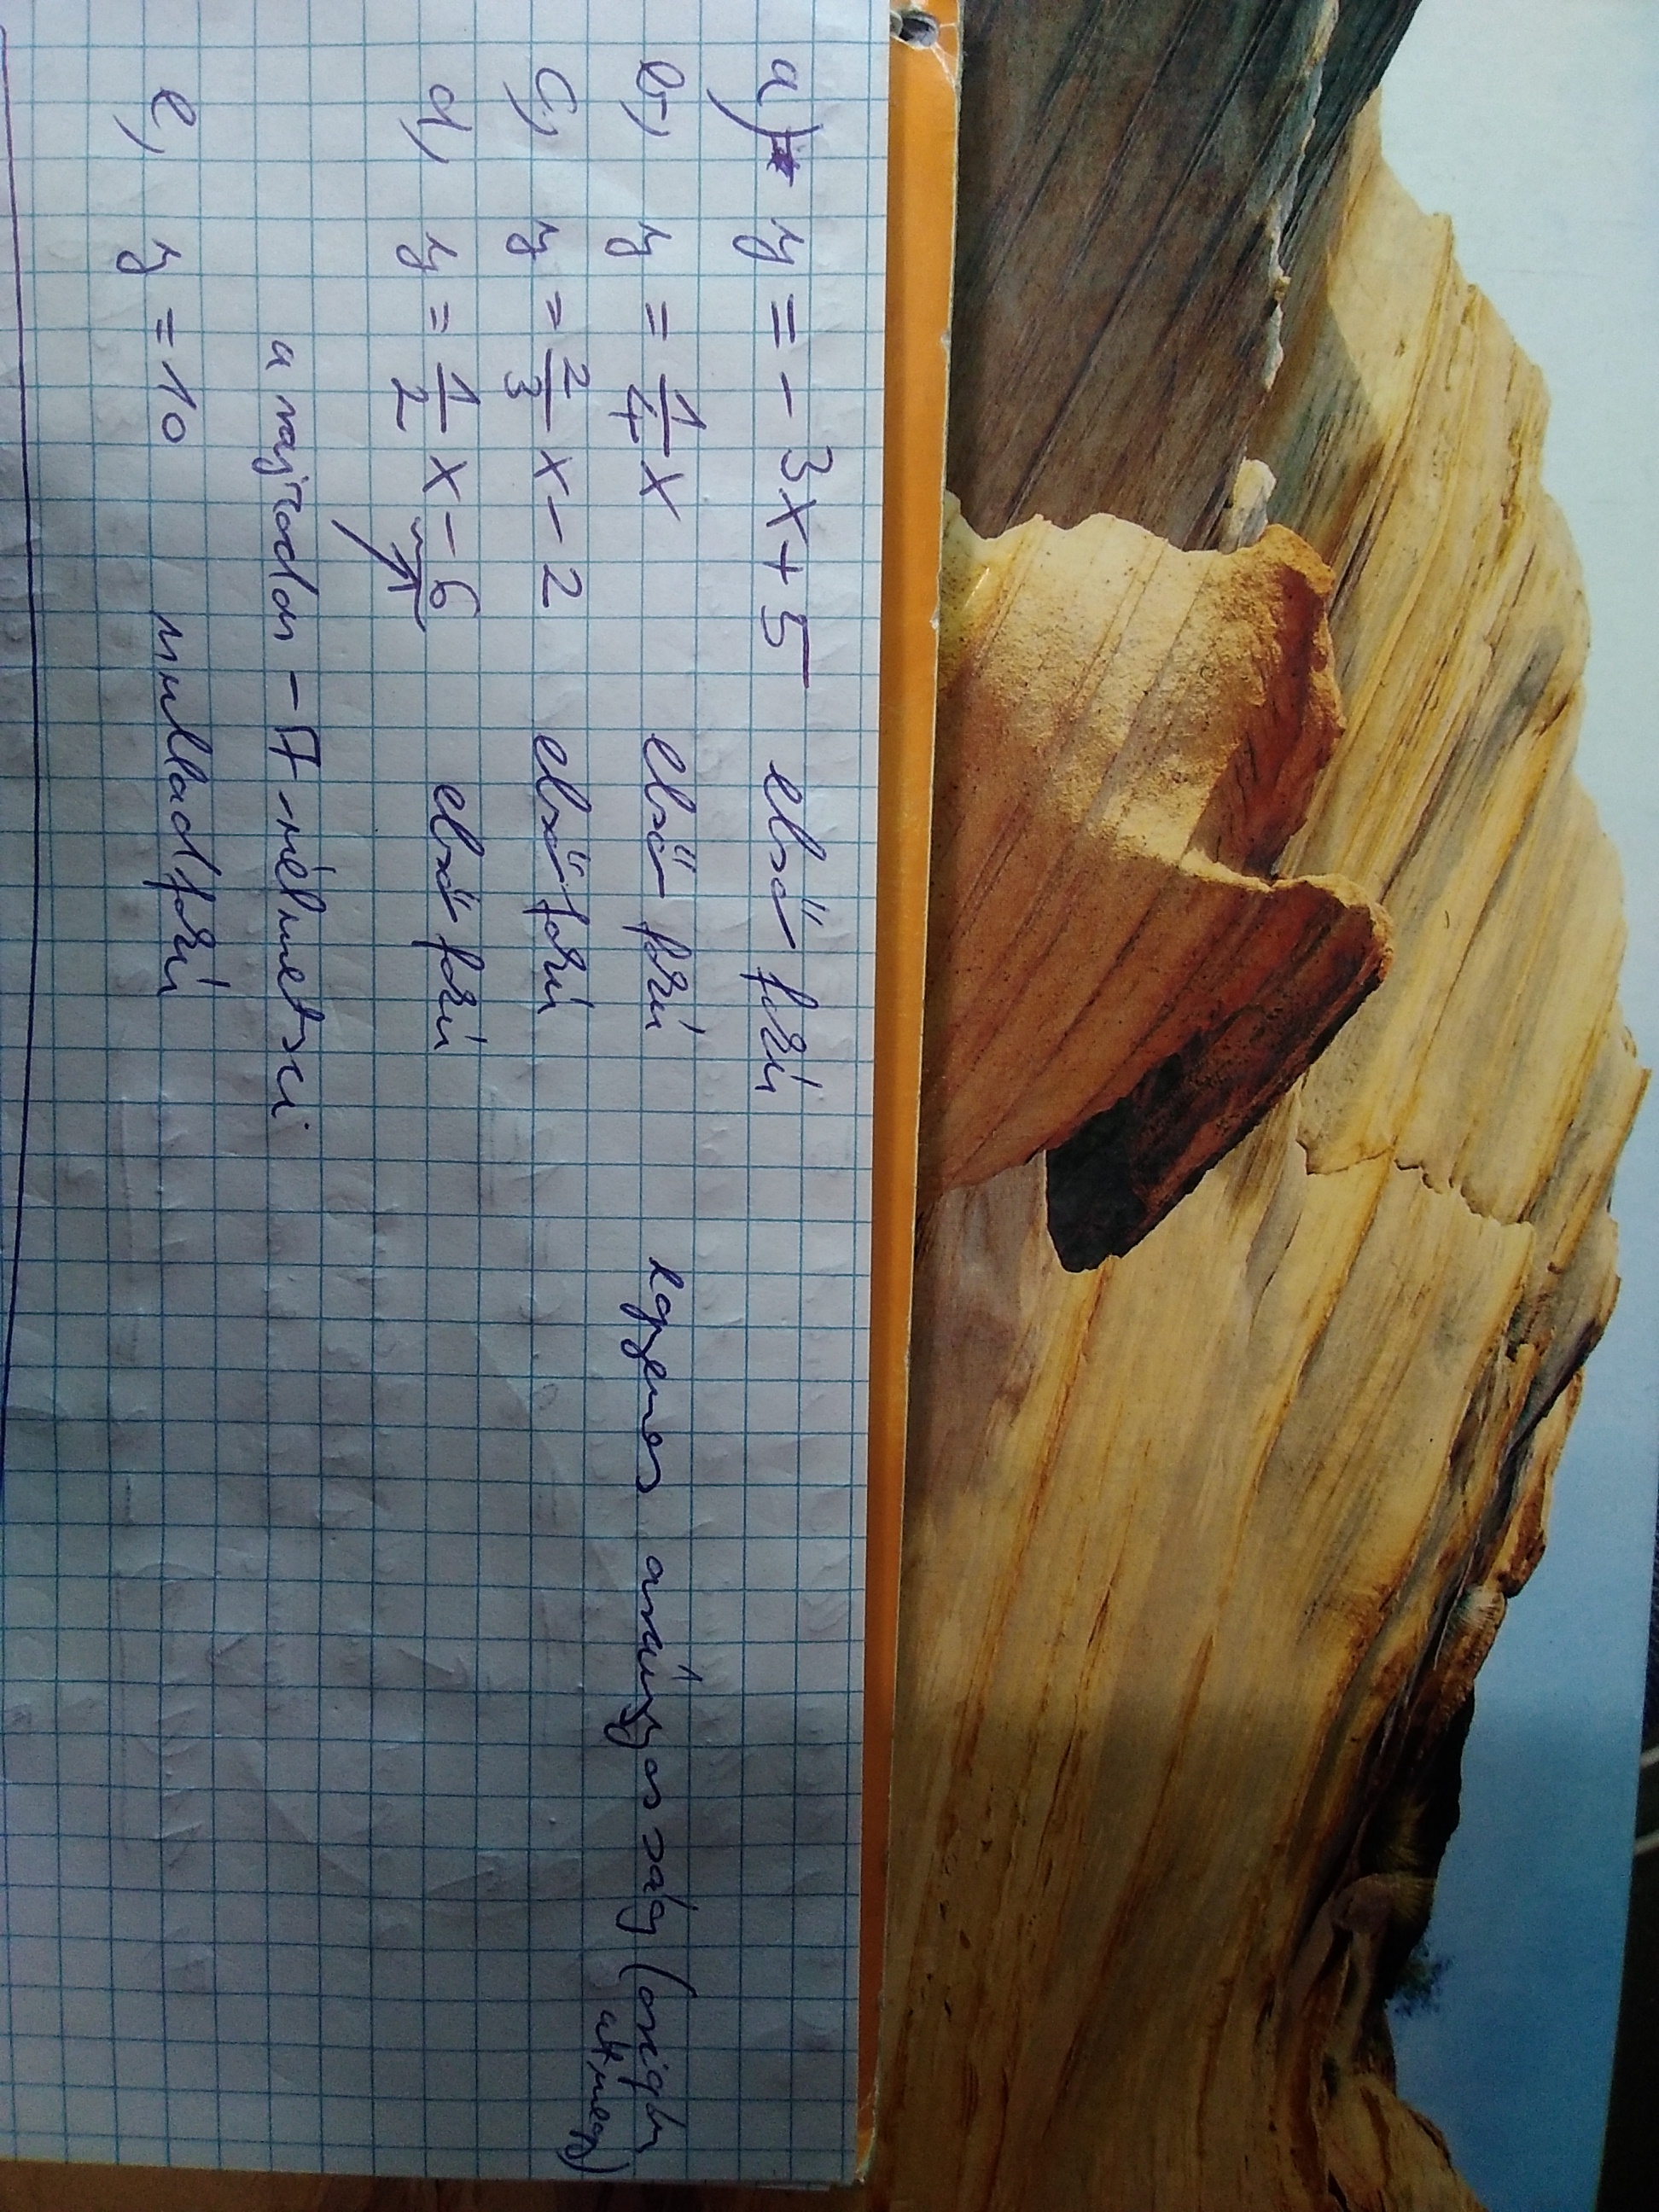 a) y = - 3x + 5 első fokú
b, y = 1/4 x első fokú egyenes arányosság (origón átmegy)
c, y = 2/3 x - 2 első fokú
d, y = 1/2 x - 6 első fokú
a rajzodon -7-nél metszi
e, y = 10 nullad fokú